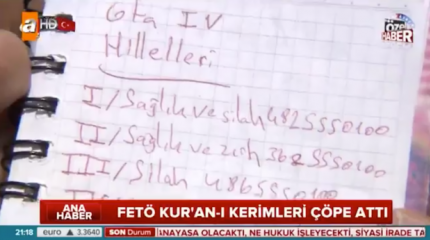 a HD
ÖZEL
HABER
Gta IV
Hilleleri
I/Sağlık ve silah 482 555 0100
II/Sağlık ve zırh 362 555 0100
III/Silah 486 555 0100
ANA
HABER
FETÖ KUR'AN-I KERİMLERİ ÇÖPE ATTI
21:18 euro ▲ 3.3640 SON Durum ANAYASA OLACAKTI, NE HUKUK İŞLEYECEKTİ, SİYASİ İRADE TA